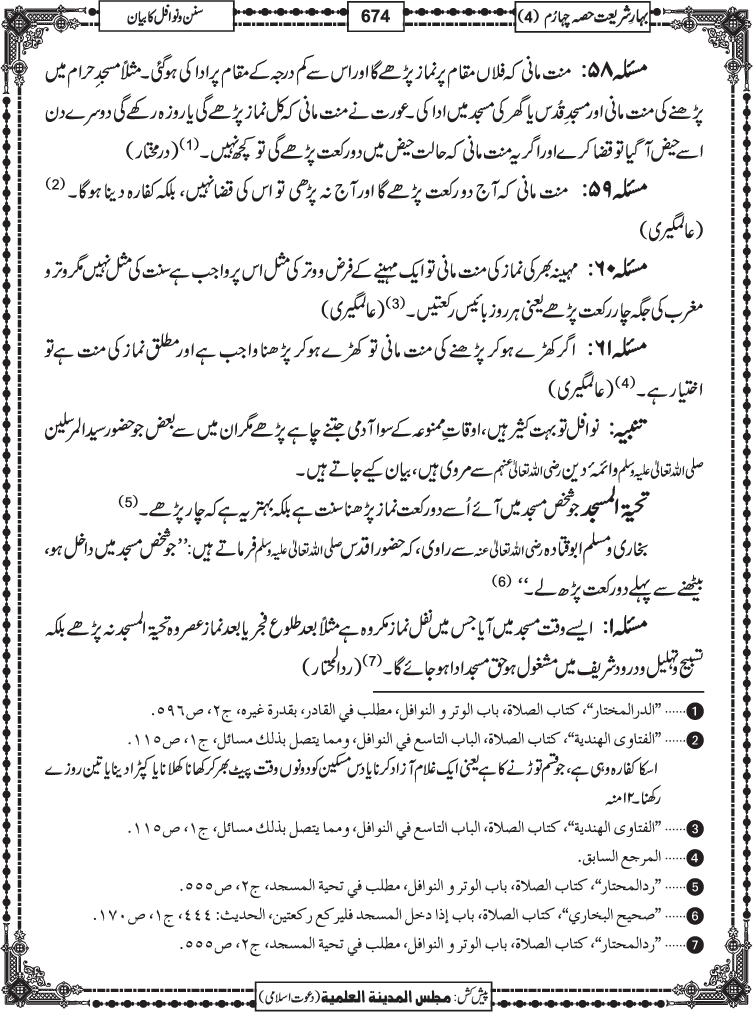 بہارِ شریعت حصہ چہارم (4)
674
سنن و نوافل کا بیان
مسئلہ ۵۸: منت مانی کہ فلاں مقام پر نماز پڑھے گا اور اس سے کم درجہ کے مقام پر ادا کی ہو گئی۔ مثلاً مسجدِ حرام میں
پڑھنے کی منت مانی اور مسجدِ قُدس یا گھر کی مسجد میں ادا کی۔ عورت نے منت مانی کہ کل نماز پڑھے گی یا روزہ رکھے گی دوسرے دن
اسے حیض آگیا تو قضا کرے اور اگر یہ منت مانی کہ حالت حیض میں دو رکعت پڑھے گی تو کچھ نہیں۔(1) (درمختار)
مسئلہ ۵۹: منت مانی کہ آج دو رکعت پڑھے گا اور آج نہ پڑھی تو اس کی قضا نہیں، بلکہ کفارہ دینا ہوگا۔(2)
(عالمگیری)
مسئلہ ۶۰: مہینہ بھر کی نماز کی منت مانی تو ایک مہینے کے فرض و وتر کی مثل اس پر واجب ہے سنت کی مثل نہیں مگر وتر و
مغرب کی جگہ چار رکعت پڑھے یعنی ہر روز بائیس رکعتیں۔(3) (عالمگیری)
مسئلہ ۶۱: اگر کھڑے ہو کر پڑھنے کی منت مانی تو کھڑے ہو کر پڑھنا واجب ہے اور مطلق نماز کی منت ہے تو
اختیار ہے۔(4) (عالمگیری)
تنبیہ: نوافل تو بہت کثیر ہیں، اوقاتِ ممنوعہ کے سوا آدمی جتنے چاہے پڑھے مگر ان میں سے بعض جو حضور سید المرسلین
صلی اللہ تعالیٰ علیہ وسلم وائمۂ دین رضی اللہ تعالیٰ عنہم سے مروی ہیں، بیان کیے جاتے ہیں۔
تحیۃ المسجد جو شخص مسجد میں آئے اُسے دو رکعت نماز پڑھنا سنت ہے بلکہ بہتر یہ ہے کہ چار پڑھے۔(5)
بخاری و مسلم ابوقتادہ رضی اللہ تعالیٰ عنہ سے راوی، کہ حضور اقدس صلی اللہ تعالیٰ علیہ وسلم فرماتے ہیں: ’’جو شخص مسجد میں داخل ہو،
بیٹھنے سے پہلے دو رکعت پڑھ لے۔‘‘ (6)
مسئلہ ۱: ایسے وقت مسجد میں آیا جس میں نفل نماز مکروہ ہے مثلاً بعد طلوع فجر یا بعد نماز عصر وہ تحیۃ المسجد نہ پڑھے بلکہ
تسبیح و تہلیل و درود شریف میں مشغول ہو حق مسجد ادا ہو جائے گا۔(7) (ردالمحتار)
1 ...... ”الدرالمختار“، كتاب الصلاة، باب الوتر و النوافل، مطلب في القادر، بقدرة غيره، ج٢، ص٥٩٦.
2 ...... ”الفتاوى الهندية“، كتاب الصلاة، الباب التاسع في النوافل، ومما يتصل بذلك مسائل، ج١، ص١١٥.
اسکا کفارہ وہی ہے، جو قسم توڑنے کا ہے یعنی ایک غلام آزاد کرنا یا دس مسکین کو دونوں وقت پیٹ بھر کر کھانا کھلانا یا کپڑا دینا یا تین روزے
رکھنا۔ ۱۲ منہ
3 ...... ”الفتاوى الهندية“، كتاب الصلاة، الباب التاسع في النوافل، ومما يتصل بذلك مسائل، ج١، ص١١٥.
4 ...... المرجع السابق.
5 ...... ”ردالمحتار“، كتاب الصلاة، باب الوتر و النوافل، مطلب في تحية المسجد، ج٢، ص٥٥٥.
6 ...... ”صحيح البخاري“، كتاب الصلاة، باب إذا دخل المسجد فليركع ركعتين، الحديث: ٤٤٤، ج١، ص١٧٠.
7 ...... ”ردالمحتار“، كتاب الصلاة، باب الوتر و النوافل، مطلب في تحية المسجد، ج٢، ص٥٥٥.
پیش کش: مجلس المدينة العلمية (دعوت اسلامی)